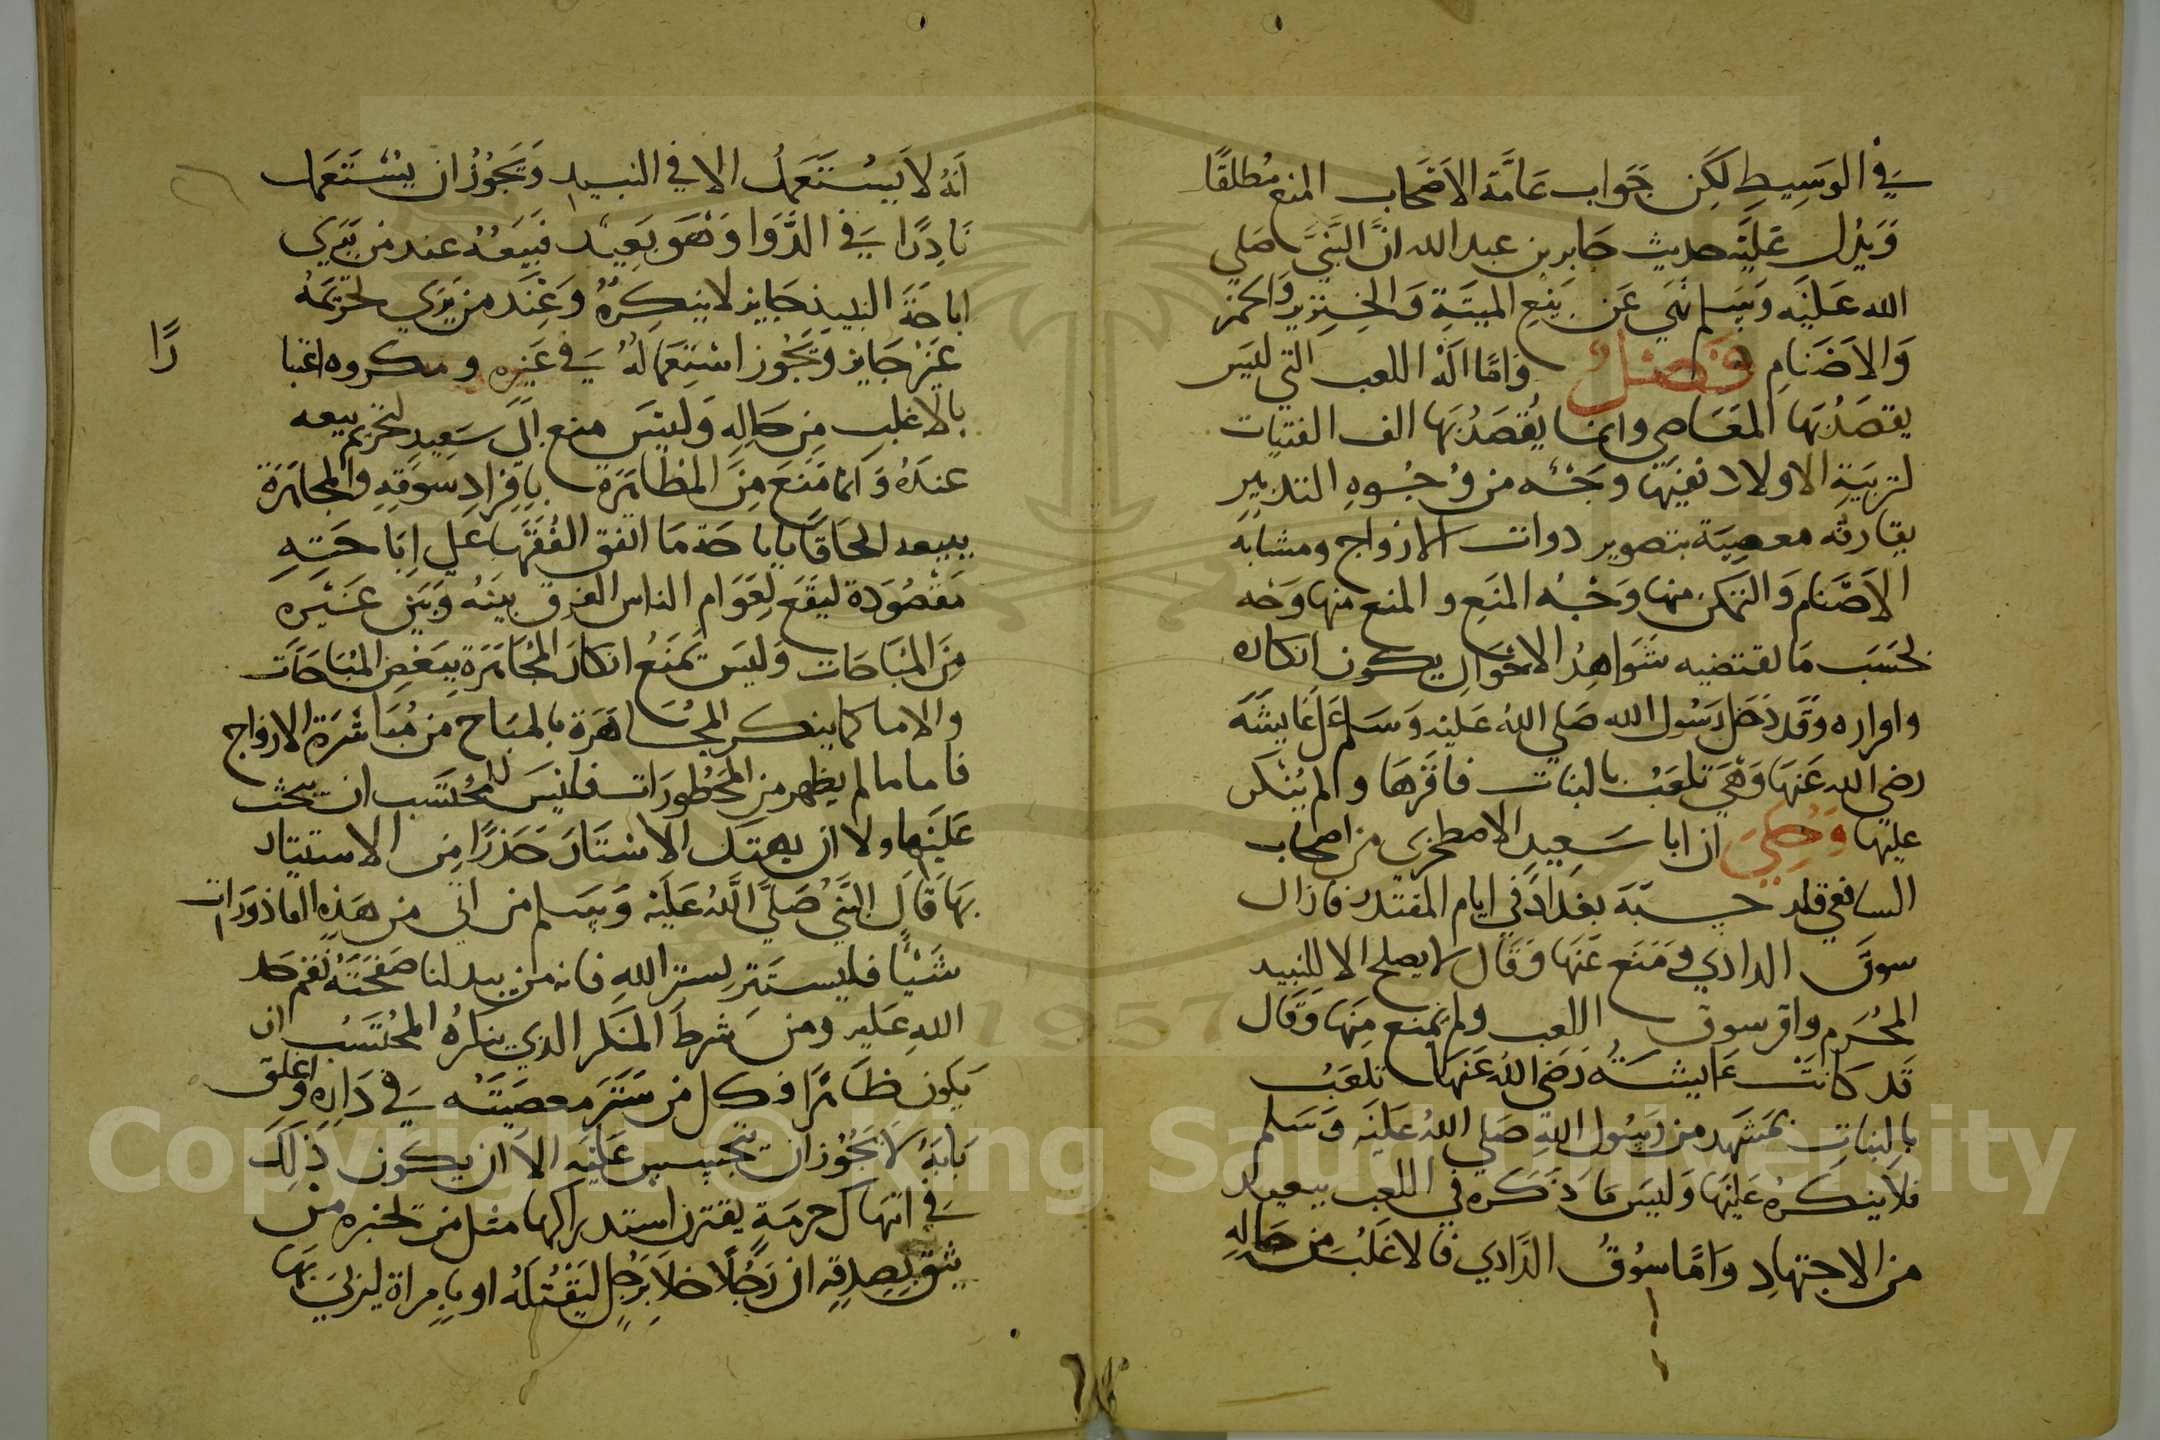 في الوَسِيطِ لكِن جَوَاب عَامَّة الاصْحَاب المنع مُطلقًا
وَيَدُل عَليْه حديث جَابر بن عبد الله انَّ النَّبيَّ صَلي
الله عَليْه وَسَلم نهَي عَن بَيْعِ الميتَةِ وَالخِنزير وَالخمر
وَالاصْنَامِ فَصْل وَامَّا الَهْ اللعب التي ليسَ
يقصَدُ بهَا المعَاصِي وانما يُقصَدُ بهَا الف الفتيات
لتربيَةِ الاولاد ففِيهَا وجْه من وُجُوهِ التدبير
يقارنه معصِيَة بتصوير ذوات الارواح ومشابهَ
الاَصْنام وَالتمكن منها وَجْه المنَع والمنع منها وَجْه
بحَسَب مَا تقتضيه شوَاهِدُ الاحْوَالِ يكون انكاره
واقراره وَقد دَخل رَسُول الله صَلي الله عَليْه وَسَلم عَلي عَايشَة
رضي الله عَنهَا وَهْيَ تلعَبُ بالبنات فاقَرهَا ولم يُنكر
عليْها وَحُكِيَ ان ابا سَعِيدٍ الاصطخري من اصحاب
الشافعي قلد حِسْبَة بغدَاد في ايام المقتدر فازال
سوقَ الدادي وَمَنعَ عَنهَا وَقَال لا يصلح الا للنبيد
المحُرَم واقر سوق اللعب ولم يَمنع مِنهَا وَقَال
قَد كانَتْ عَايشَةُ رَضيَ اللهُ عَنهَا تلعَبُ
بالبنَاتِ بمَشهَد من رسُول اللهِ صَلي اللهُ عَليْه وَسَلم
فلا ينكرهُ عَليْهَا وَليسَ مَا ذكَرَه في اللعب ببعيد
من الاجتهادِ وَامَّا سُوقُ الدَّادي فالاغلبُ من حَالهِ
انهُ لا يَسْتَعمَلُ الا في النبيد وَيَجُوزُ ان يسْتَعمَل
نادِرًا في الدَّوَا وَهْوَ بَعِيْد فبيَعُهُ عند من يَرَي
اباحَة النبيذ جَايز لا ينكِرهُ وَعِند من يَرَي تحريمَهُ
غَيْر جَايز وَيَجُوز اسْتعمَالهُ في غَيره ومكروه اعتبا
رًا
بالاَغلبِ مِن حَالِهِ وَليسَ منع ابَي سَعِيدٍ لتحريم بيعه
عندَهُ وَانما مَنعَ مِنَ المظاهَرة بافِرَادِ سوقِهِ والمجاهَرَة
ببيعه الحَاقًا باباحَة مَا اتفق الفُقَهَا علي اباحَتِهِ
مَقصُودَة ليقَع لعَوَام الناس الفرق بينَهُ وَبَين غَيْرِه
مِنَ المبَاحَات وَليسَ يَمنَعُ انكارَ المجَاهَرَةِ ببَعْضِ المبَاحَات
والاما كما ينكر المجُاهَرة بالمبَاح مِن مُبَاشَرَة الازوَاج
فاما ما لم يظهر من المحَظورَات فليسَ للمحُتسَب ان يبحث
عَليْها ولا ان يهتك الاسْتَارَ حَذرًا من الاستتار
بهَا قَال النبَّيُ صَلَّي اللَّهُ عَليْه وَسَلم من اتي من هَذِهِ القاذورَات
شَيْئًا فليستتَر بستر اللهِ فانه من يبد لنا صَفحَتهُ نقم حَد
اللهِ عَليْه ومن شَرط المنكر الذي ينكرهُ المحُتسَبُ ان
يَكون ظاهرًا فكل من سَتَرَ معصيَتَه في دَارِهِ وَاغلق
بابَهُ لا يَجُوُز ان يتجَسس عَليْه الاَ ان يكون ذلكَ
في انتهاك حرمَةٍ يقترن استدراكها مثل من تخبره من
يثق بصِدقِه ان رَجُلًا خلا برَجُلٍ ليَقْتُلهُ او بامِراة ليزنيَ بهَا